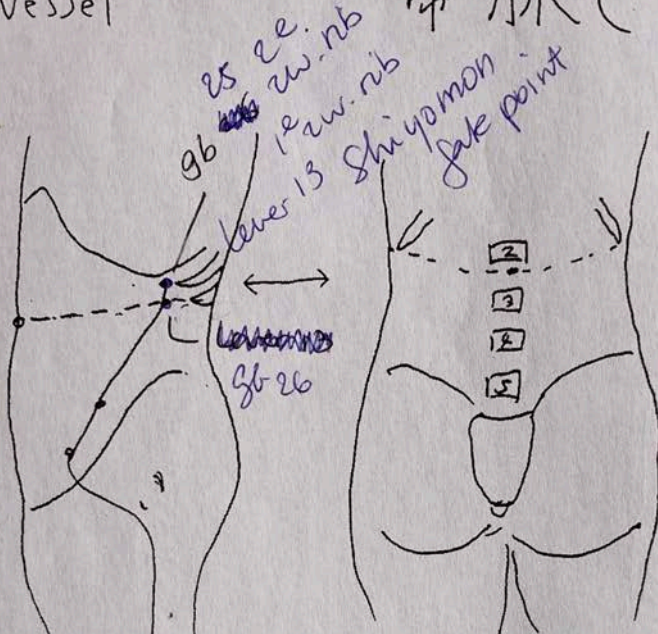 Vessel
帯脈(
gb 25 2e. zw. rib
1e zw. rib
Lever 13 Shiyomon
gate point
gb 26
2
3
4
5